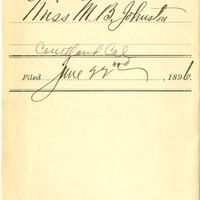 Miss M. B. Johnston
Courtland Cal
Filed June 22nd, 1896.